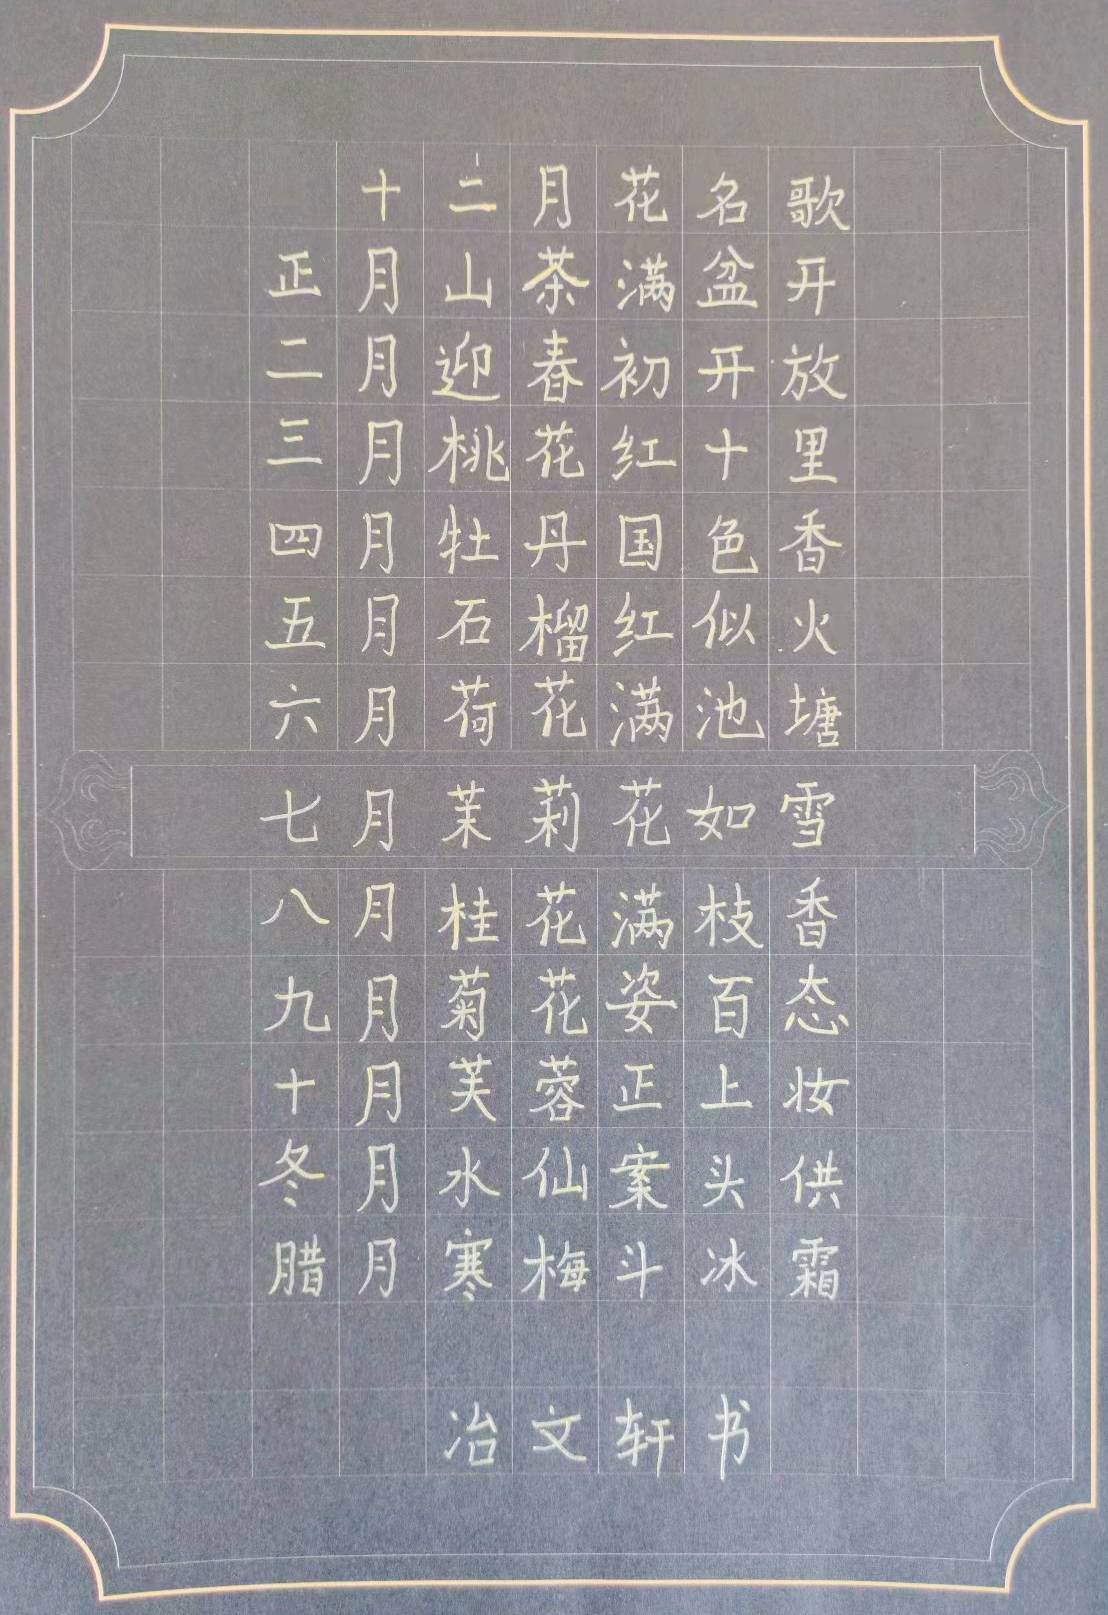 十二月花名歌
正月山茶满盆开
二月迎春初开放
三月桃花红十里
四月牡丹国色香
五月石榴红似火
六月荷花满池塘
七月茉莉花如雪
八月桂花满枝香
九月菊花姿百态
十月芙蓉正上妆
冬月水仙案头供
腊月寒梅斗冰霜
冶文轩书